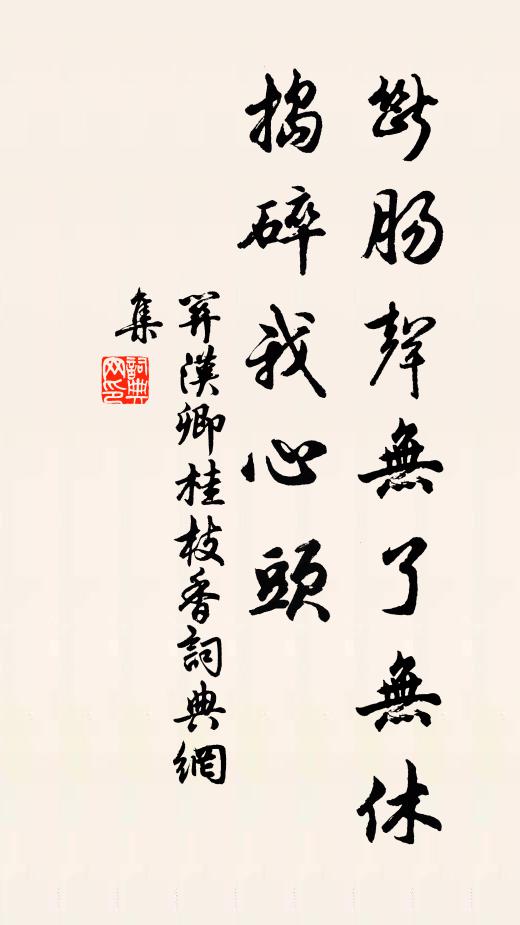 斷腸聲無了無休
搗碎我心頭
關漢卿桂枝香詞典網
集
詞典网印